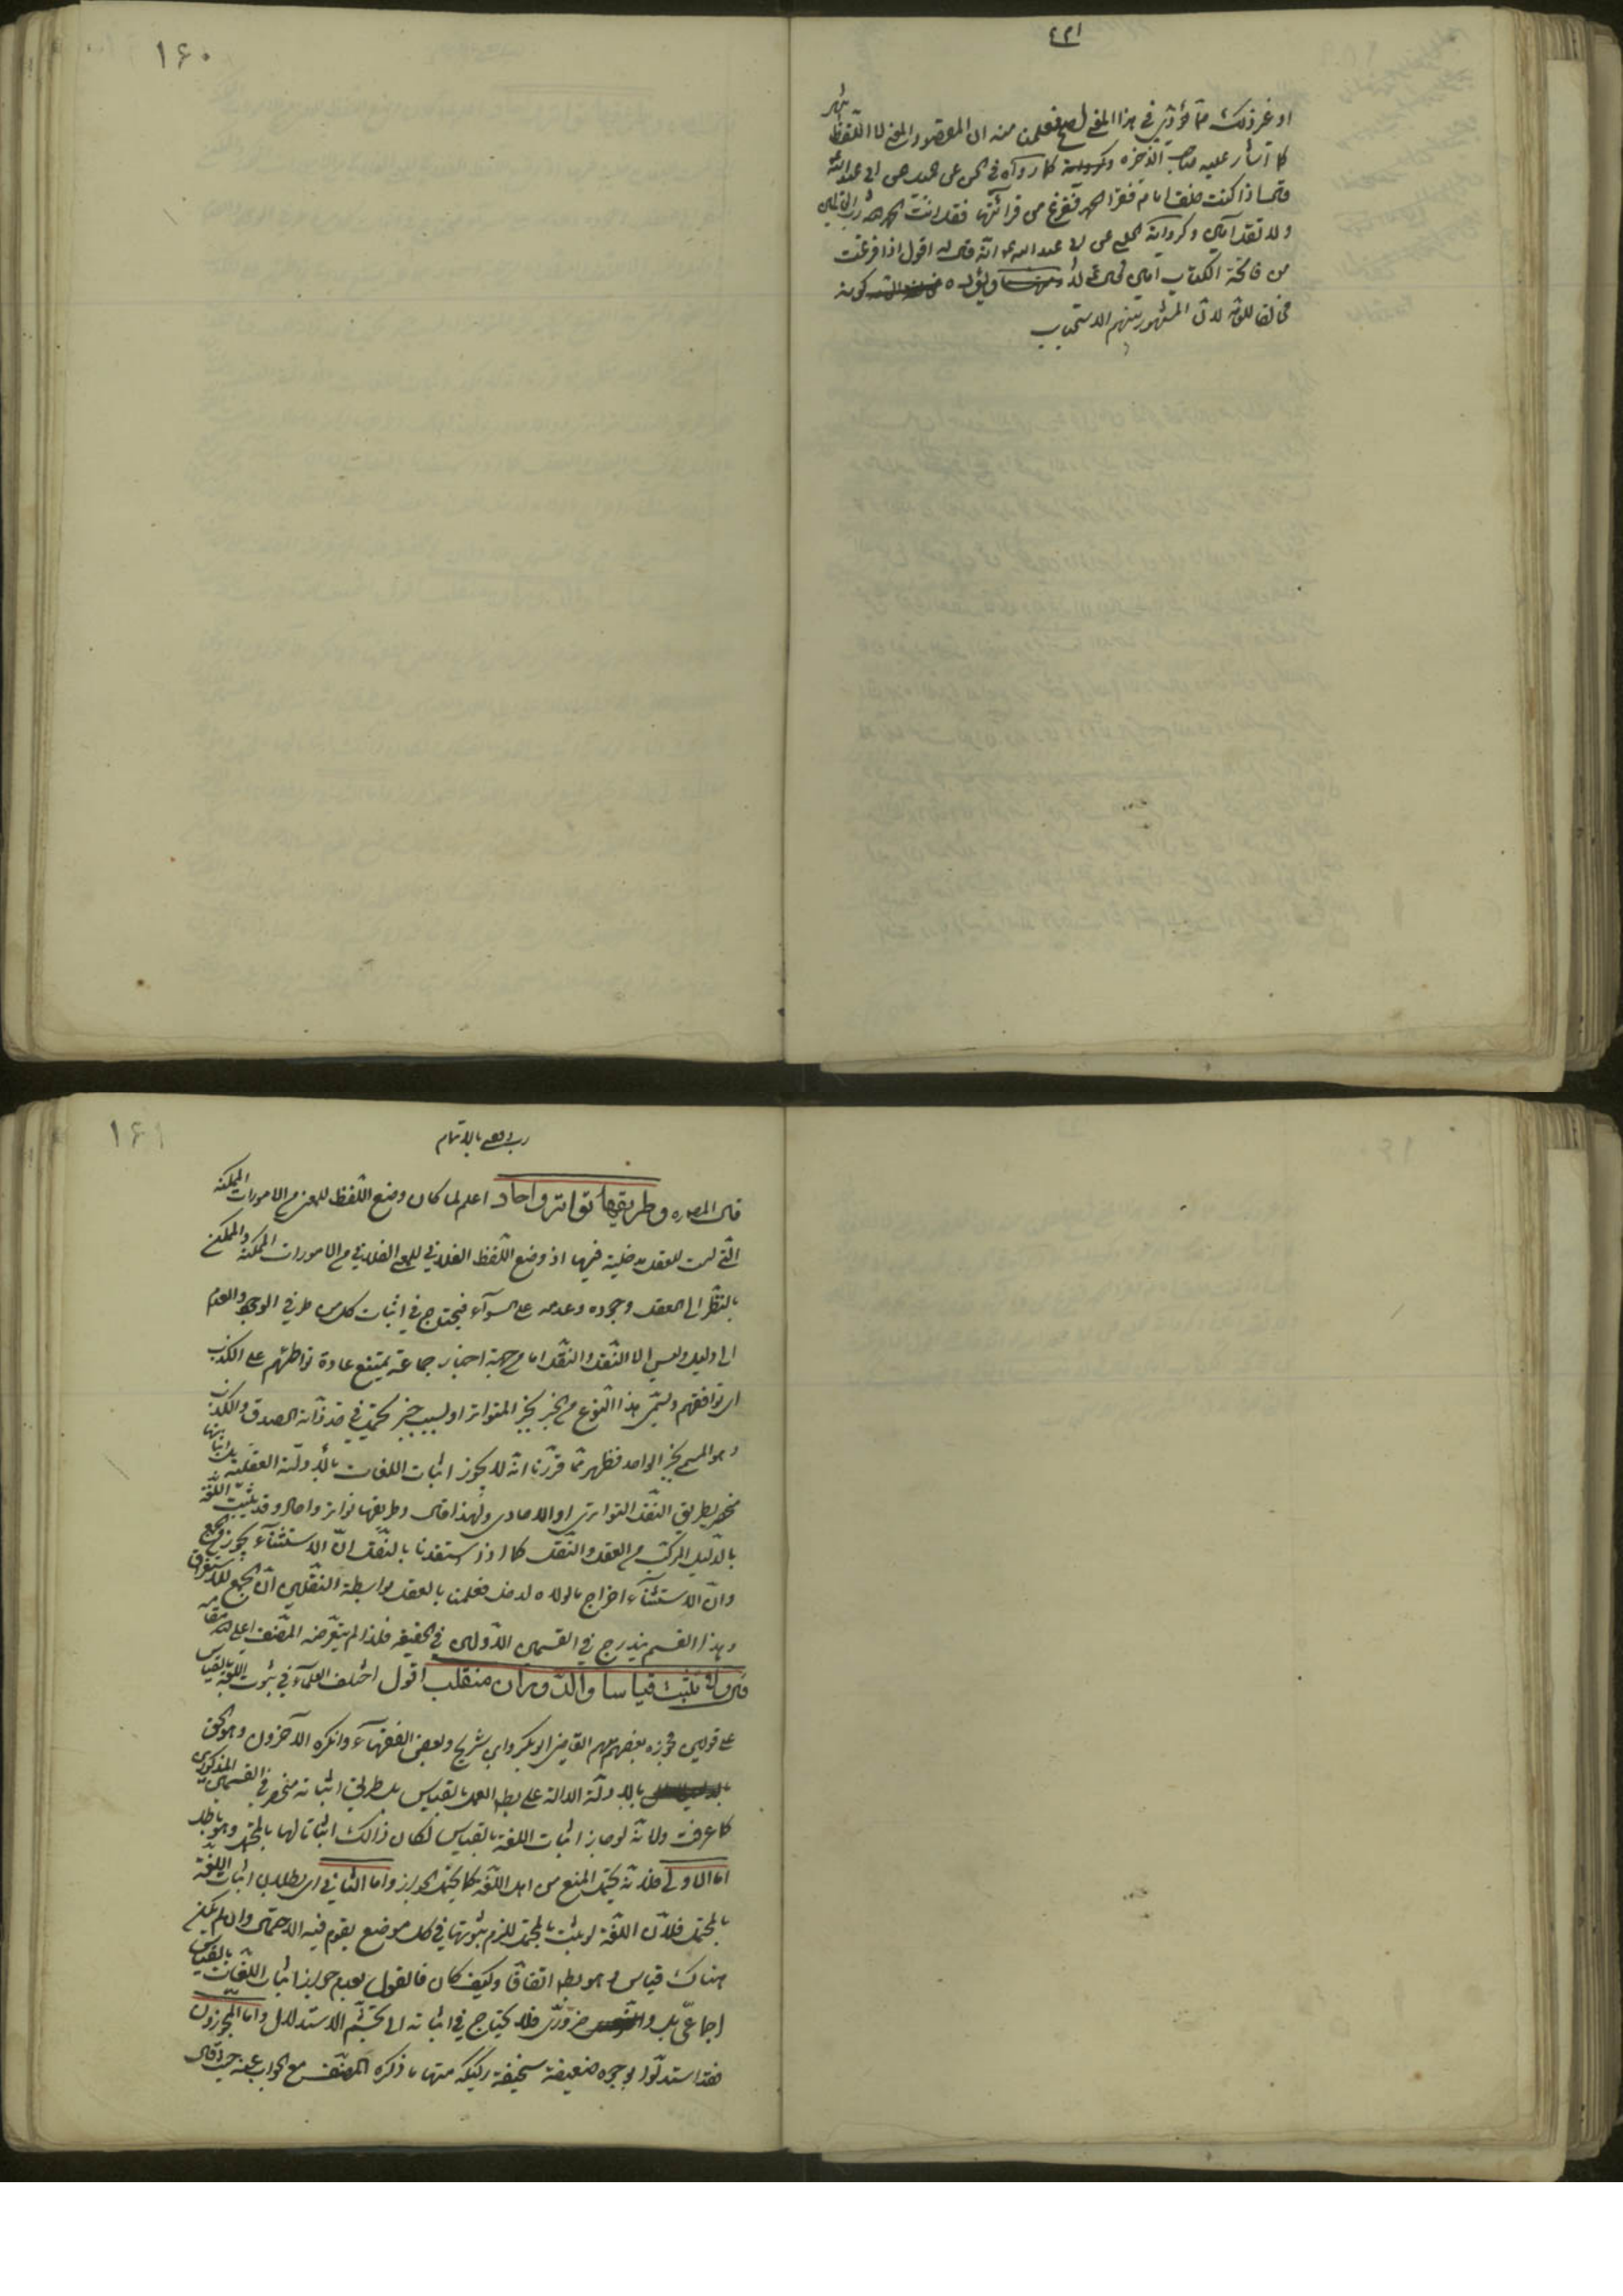 ١٦٠
او غير ذلك مما يؤدي في هذا المعنى فعلمنا منه ان المقصود المعنى لا اللفظ
كما اشار عليه صاحب الذخيرة كما رواه في عن ابي عبد الله
قال اذا كنت خلف امام فقرأ الحمد ففرغ من قرائتها فقل انت الحمد لله رب العالمين
ولا تقل آمين وكرواية الحلبي عن ابي عبد الله انه قال له اقول اذا فرغت
من فاتحة الكتاب آمين قال لا كونه
مخالفا للعامة لان المشهور بينهم الاستحباب
١٦١
رب وفق بالاتمام
قال المص ره وطريقها تواتر واحاد اعلم لما كان وضع اللفظ للمعنى من الامورات الممكنة
التي ليست للعقل مدخلية فيها اذ وضع اللفظ الفلاني للمعنى الفلاني من الامورات الممكنة والممكن
بالنظر الى العقل وجوده وعدمه على السواء فيحتاج في اثبات كل من طرفي الوجود والعدم
الى دليل وليس الا النقل والنقل اما من جهة اخبار جماعة يمتنع عادة تواطئهم على الكذب
اي توافقهم ويسمى هذا النوع من الخبر بخبر المتواتر او بسبب خبر يحتمل في حد ذاته الصدق والكذب
وهو المسمى بخبر الواحد فظهر مما قررنا انه لا يجوز اثبات اللغات بالادلة العقلية بل اثباتها
منحصر بطريق النقل التواتري او الاحادي ولهذا قال وطريقها تواتر واحاد وقد يثبت اللغة
بالدليل المركب من العقل والنقل كما اذا استفدنا بالنقل ان الاستثناء يجوز من الجمع
وان الاستثناء اخراج ما لولاه لدخل فعلمنا بالعقل بواسطة النقلين ان الجمع للاستغراق
وهذا القسم يندرج في القسمين الاولين في الحقيقة فلذا لم يتعرضه المصنف اعلى الله مقامه
قال ولا تثبت قياسا والدوران منقلب اقول اختلف العلماء في ثبوت اللغة بالقياس
على قولين فجوزه بعضهم منهم القاضي ابو بكر وابن شريح وبعض الفقهاء وانكره الآخرون وهو الحق
بالادلة الدالة على بطلان العمل بالقياس بل طريق اثباته منحصر في القسمين المذكورين
كما عرفت ولانه لو جاز اثبات اللغة بالقياس لكان ذلك اثباتا لها بالمحتمل وهو باطل
اما الاولى فلانه يحتمل المنع من اهل اللغة كما يحتمل الجواز واما الثاني اي بطلان اثبات اللغة
بالمحتمل فلان اللغة لو يثبت بالمحتمل للزم ثبوتها في كل موضع يقوم فيه الاحتمال وان لم يكن
هناك قياس وهو بط اتفاقا وكيف كان فالقول بعدم جواز اثبات اللغات بالقياس
اجماعي بل ضروري فلا يحتاج في اثباته الى تجشم الاستدلال واما المجوزون
فقد استدلوا بوجوه ضعيفة سخيفة ركيكة منها ما ذكره المصنف مع الجواب عنه حيث قال